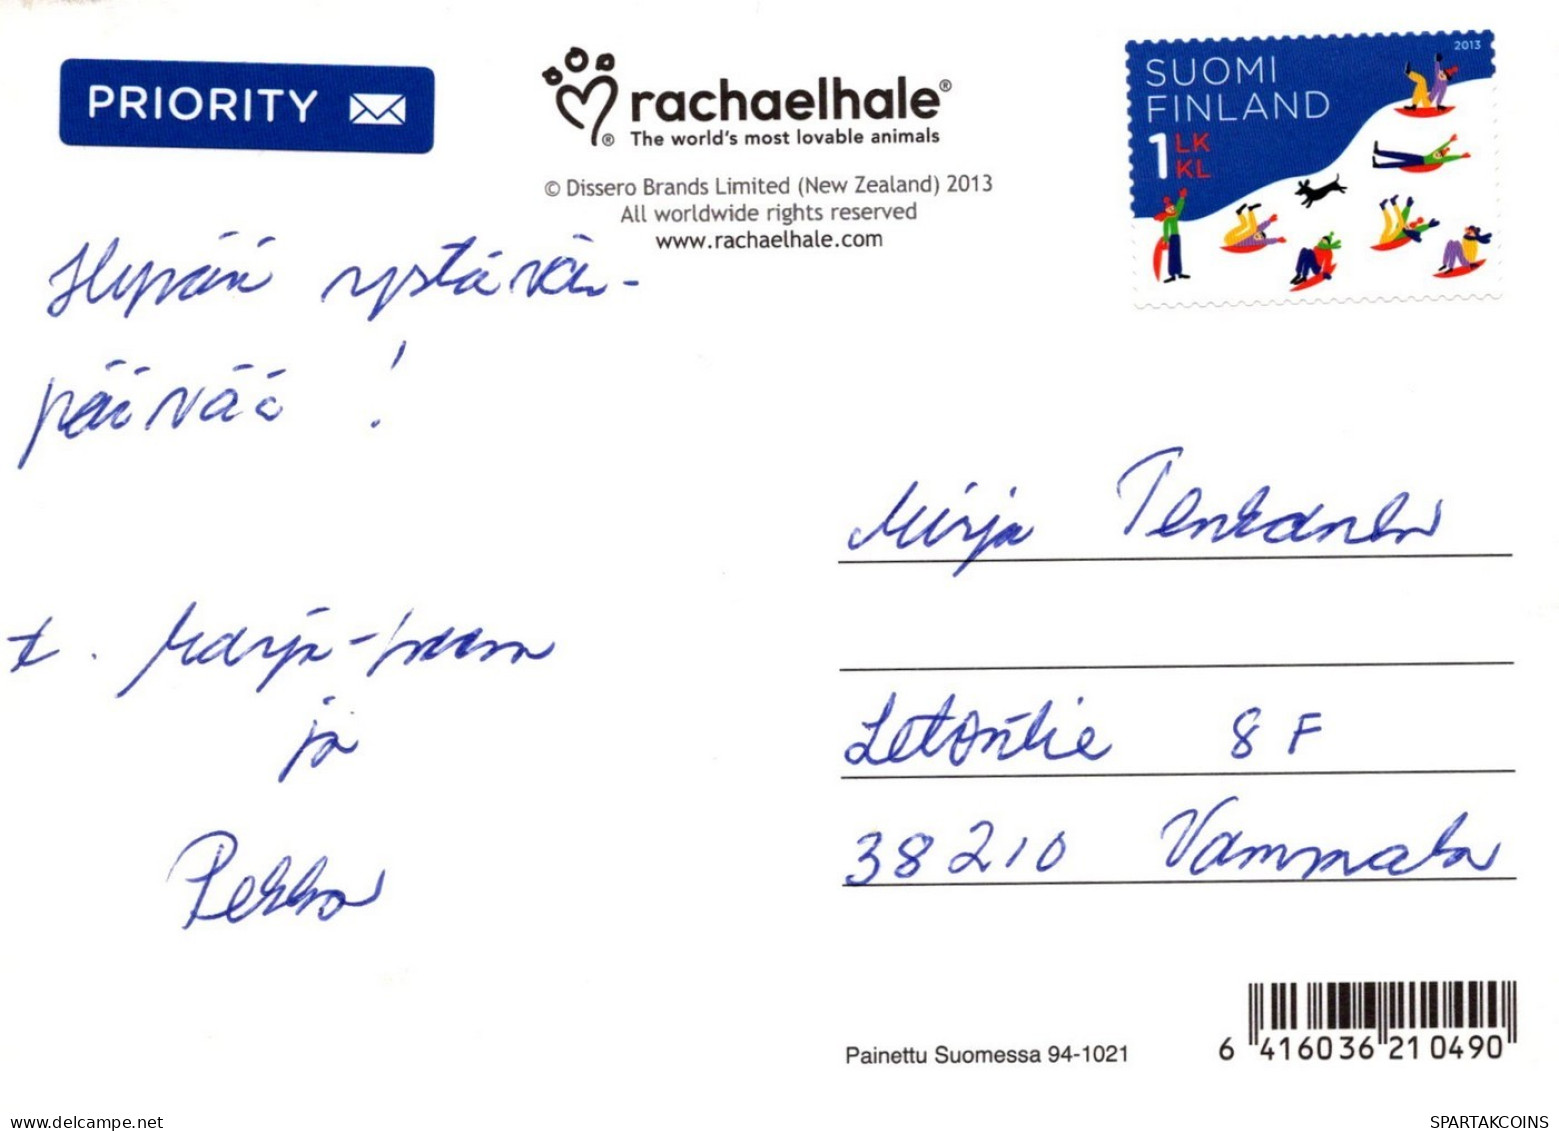 PRIORITY
rachaelhale®
®
The world's most lovable animals
© Dissero Brands Limited (New Zealand) 2013
All worldwide rights reserved
www.rachaelhale.com
2013
SUOMI
FINLAND
1 LK
KL
Hyvää ystävän-
päivää !
t. Marja-
ja
Pekka
Mirja Penkanen
8 F
38210 Vammala
Painettu Suomessa 94-1021
6 416036 210490
SPARTAKCOINS
delcampe.net